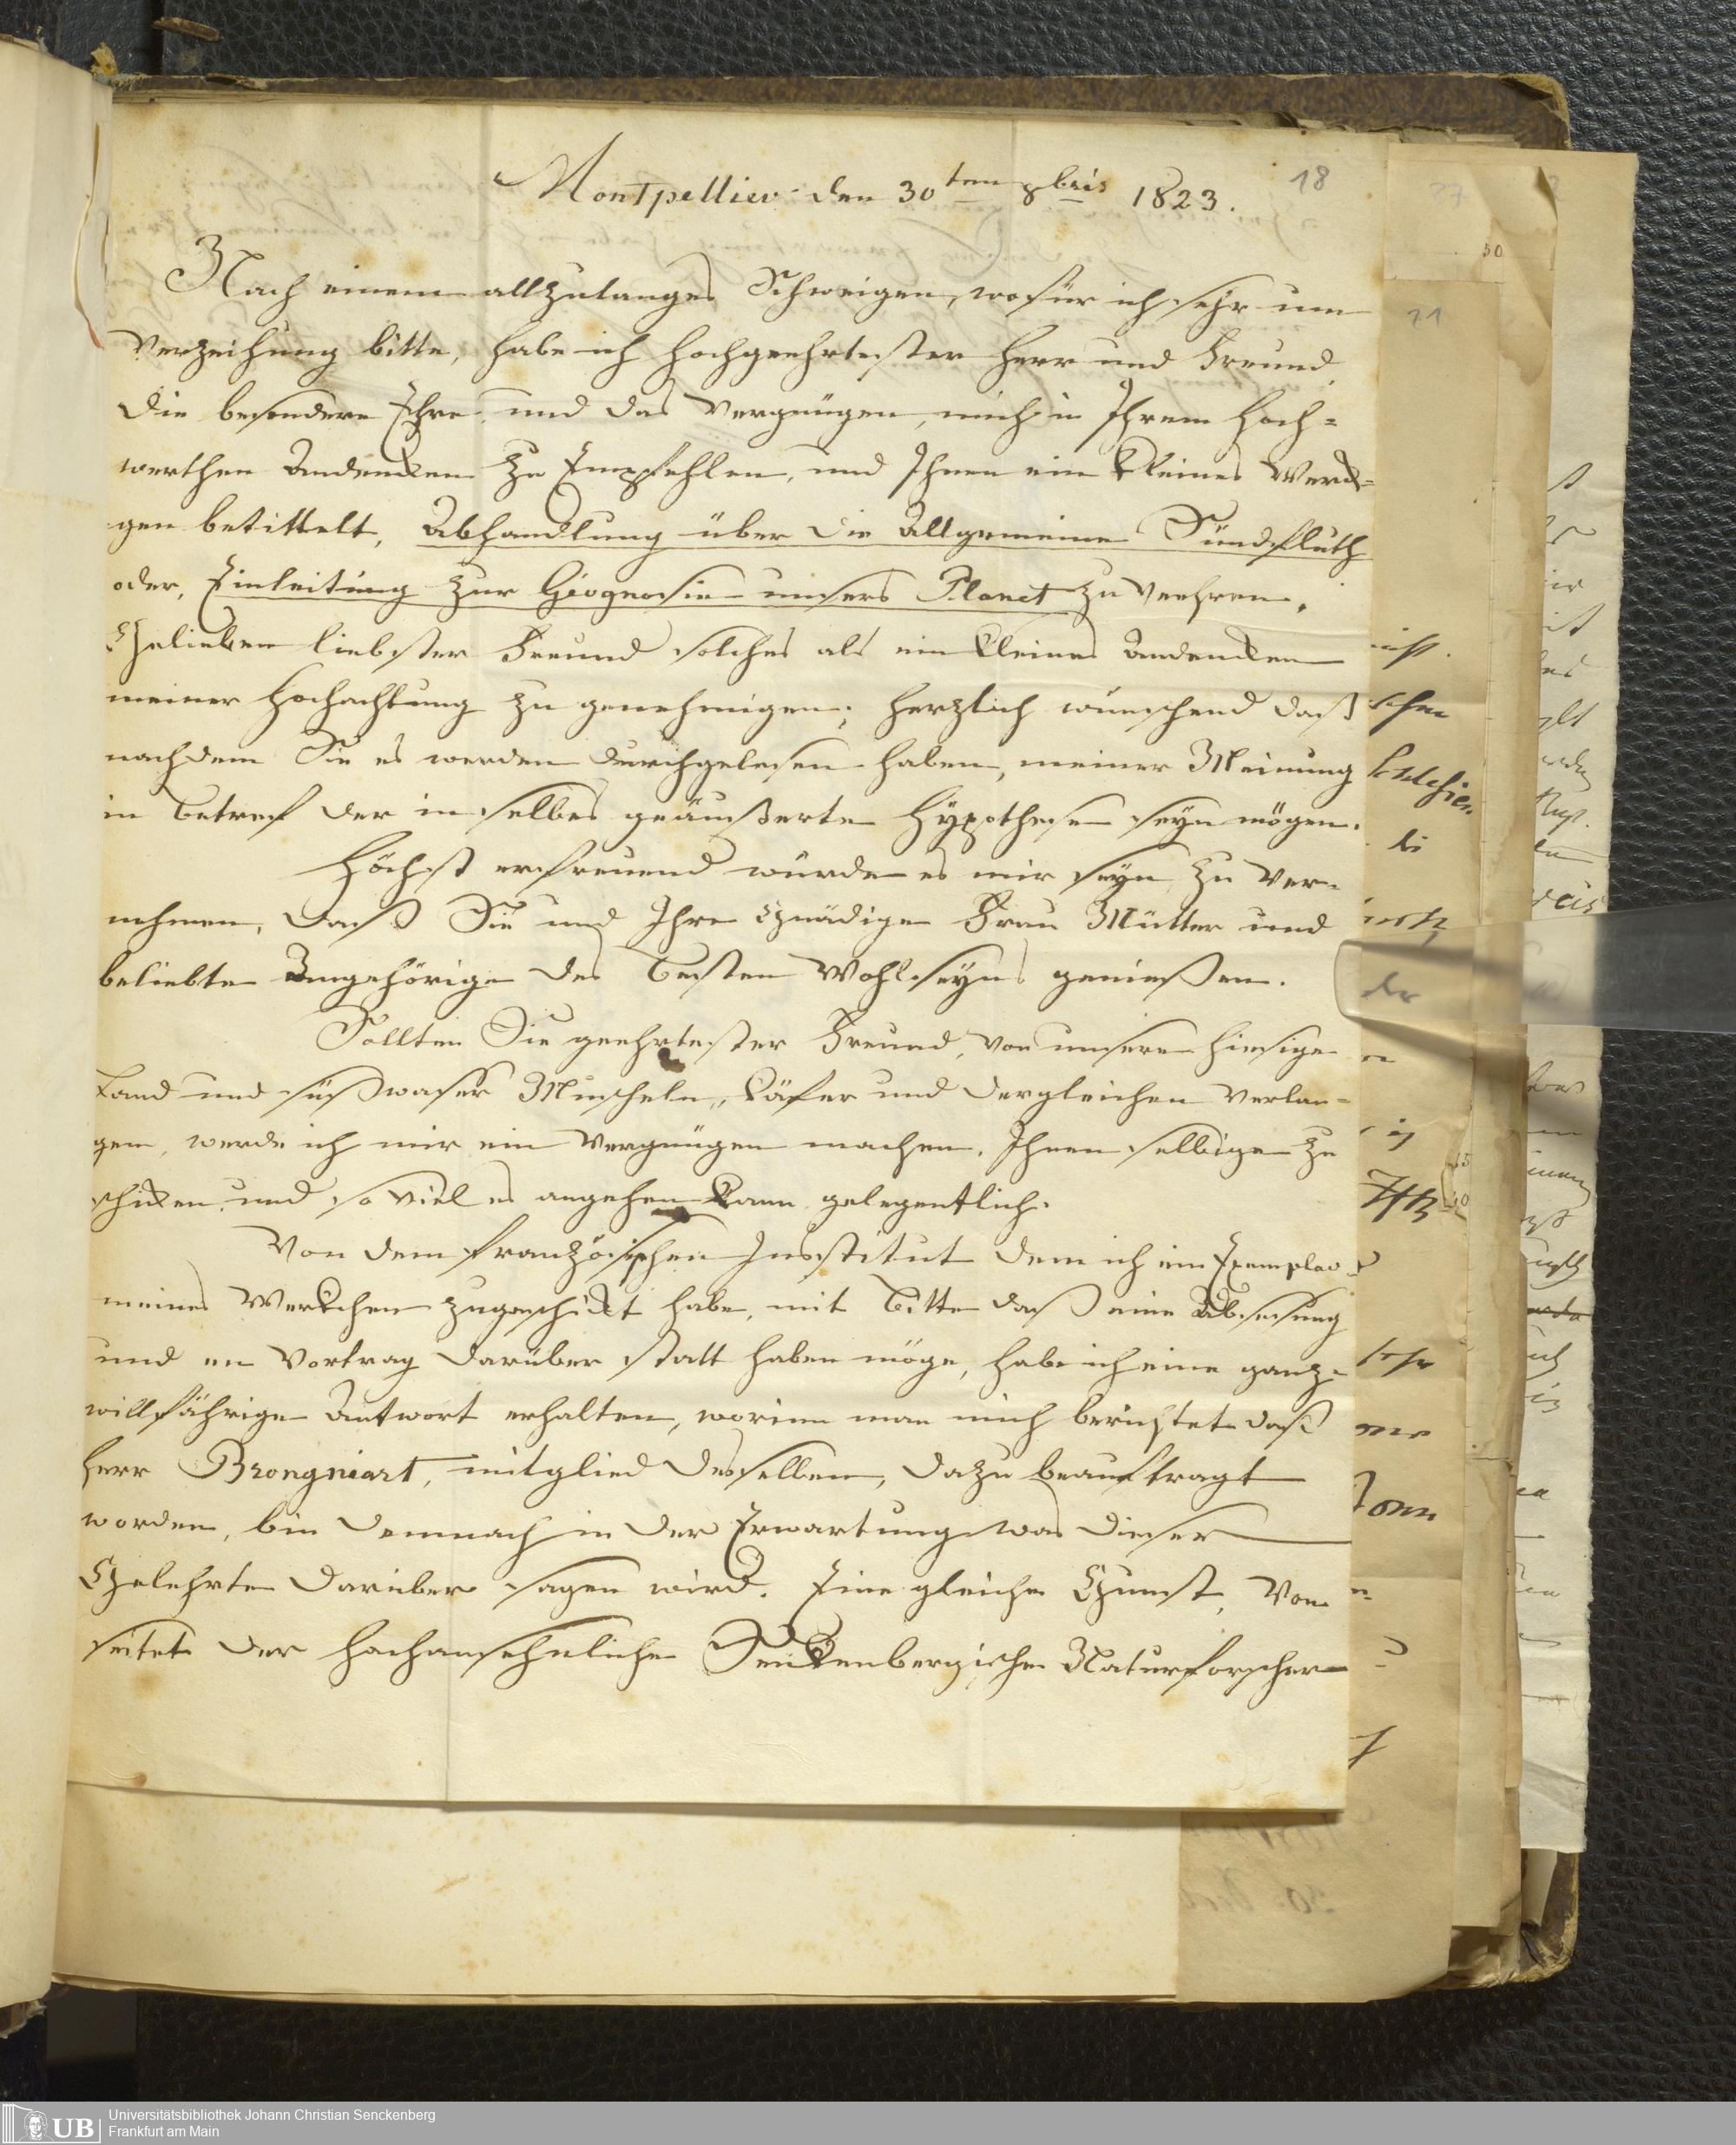 Montpellier den 30ten 8bris 1823.
18
Nach einem allzulanges Schweigen, wofür ich sehr um
Verzeihung bitte, habe ich hochgeehrtester Herr und Freund
die besondere Ehre und das Vergnügen, mich in Ihrem Hoch=
werthen Andencken zu Empfehlen, und Ihnen ein kleines Werck=
gen betittelt, Abhandlung über die Allgemeine Sündfluth
oder, Einleitung zur Géognosie unsers Planet zu Verehren.
Gelieben liebster Freund solches als ein kleines Andencken
meiner Hochachtung zu genehmigen; herzlich wünschend daß
nachdem Sie es werden durchgelesen haben, meiner Meinung
in Betref der in selbes geäußerte Hypothese seyn mögen.
Höchst erfreuend würde es mir seyn zu Ver=
nehmen, daß Sie und Ihre Gnädige Frau Mutter und
beliebte Angehörige des Besten Wohlseyns genießen.
Sollten Sie geehrtester Freund, von unsere hiesige
Land und süßwaser Muscheln, Käfer und dergleichen Verlan=
gen, werde ich mir ein Vergnügen machen, Ihnen selbige zu
schicken und so viel es angehen kann gelegentlich.
Von dem französischen Institut dem ich ein Exemplar
meines Werckchen zugeschickt habe, mit Bitte daß eine Ablesung
und en Vortrag darüber statt haben möge, habe ich eine ganz
willfährige Antwort erhalten, worinn man mich berichtet daß
Herr Brongniart, mitglied desselben, dazu beauftragt
worden, bin demnach in der Erwartung was dieser
Gelehrte darüber sagen wird. Eine gleiche Gunst, von
seite der hochansehnliche Senckenbergische Naturforscher
71
50
UB
Universitätsbibliothek Johann Christian Senckenberg
Frankfurt am Main